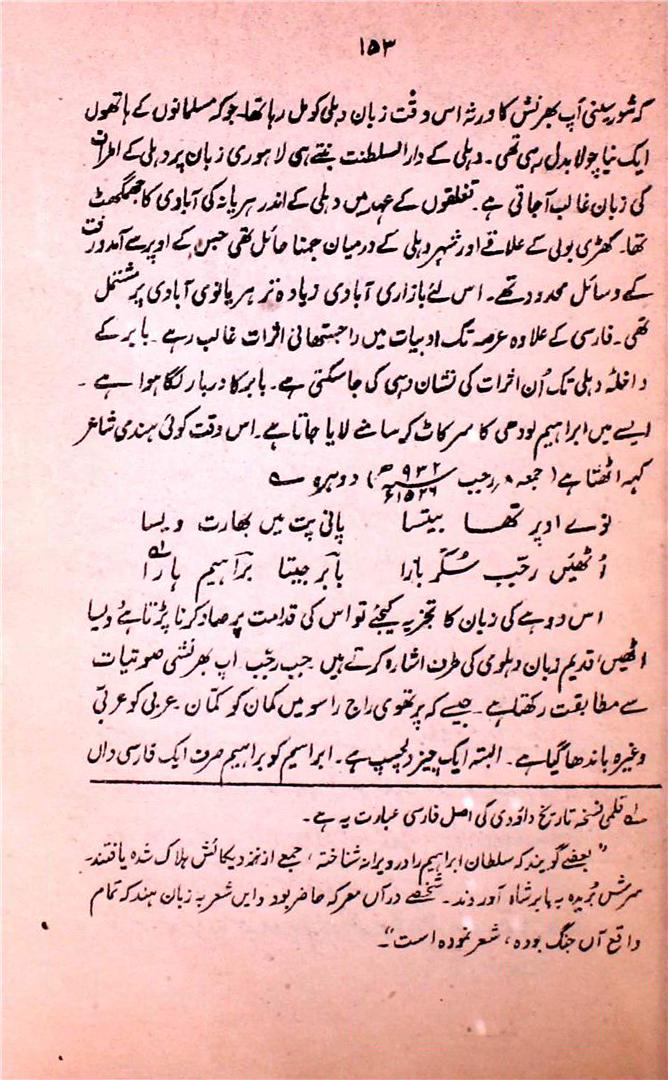 ۱۵۳
کہ شورسینی اَپ بھرنش کا ورثہ اس وقت زبان دہلی کو مل رہا تھا۔ جو کہ مسلمانوں کے ہاتھوں
ایک نیا چولا بدل رہی تھی۔ دہلی کے دار السلطنت بنتے ہی لاہوری زبان پر دہلی کے اطراف
کی زبان غالب آجاتی ہے۔ تغلقوں کے عہد میں دہلی کے اندر ہریانہ کی آبادی کا جمگھٹ
تھا۔ کھڑی بولی کے علاقے اور شہر دہلی کے درمیان جمنا حائل تھی جس کے اوپر سے آمدورفت
کے وسائل محدود تھے۔ اس لئے بازاری آبادی زیادہ تر ہریانوی آبادی پر مشتمل
تھی۔ فارسی کے علاوہ عرصہ تک ادبیات میں راجستھانی اثرات غالب رہے۔ بابر کے
داخلہ دہلی تک اُن اثرات کی نشان دہی کی جاسکتی ہے۔ بابر کا دربار لگا ہوا ہے۔
ایسے میں ابراہیم لودھی کا سر کاٹ کر سامنے لایا جاتا ہے۔ اس وقت کوئی ہندی شاعر
کہہ اٹھتا ہے (جمعہ ۸ رجب ۹۳۲ھ ۱۵۲۶ء) دوہرہ ؎
نوے اوپر تھا بیتسا پانی پت میں بھارت ویسا
اُٹھئیں رجّب سُکّر بارا بابر جیتا براہیم ہارا ؎۱
اس دوہے کی زبان کا تجزیہ کیجئے تو اس کی قدامت پر صاد کرنا پڑتا ہے ’ویسا
اٹھیں‘ قدیم زبان دہلوی کی طرف اشارہ کرتے ہیں جب رجّب اپ بھرنشی صوتیات
سے مطابقت رکھتا ہے۔ جیسے کہ پرتھوی راج راسو میں کمان کو کمّان۔ عربی کو عربّی
وغیرہ باندھا گیا ہے۔ البتہ ایک چیز دلچسپ ہے۔ ابراہیم کو براہیم صرف ایک فارسی داں
؎۱ قلمی نسخہ تاریخ داؤدی کی اصل فارسی عبارت یہ ہے۔
"بعضے گویند کہ سلطان ابراہیم را در ویرانہ شناختہ، جمعے از نزدیکانش ہلاک شدہ یافتند۔
سرش بُریدہ بہ بابر شاہ آوردند۔ شخصے درآں معرکہ حاضر بود و ایں شعر بہ زبان ہند کہ تمام
واقع آں جنگ بودہ، شعر نمودہ است"۔